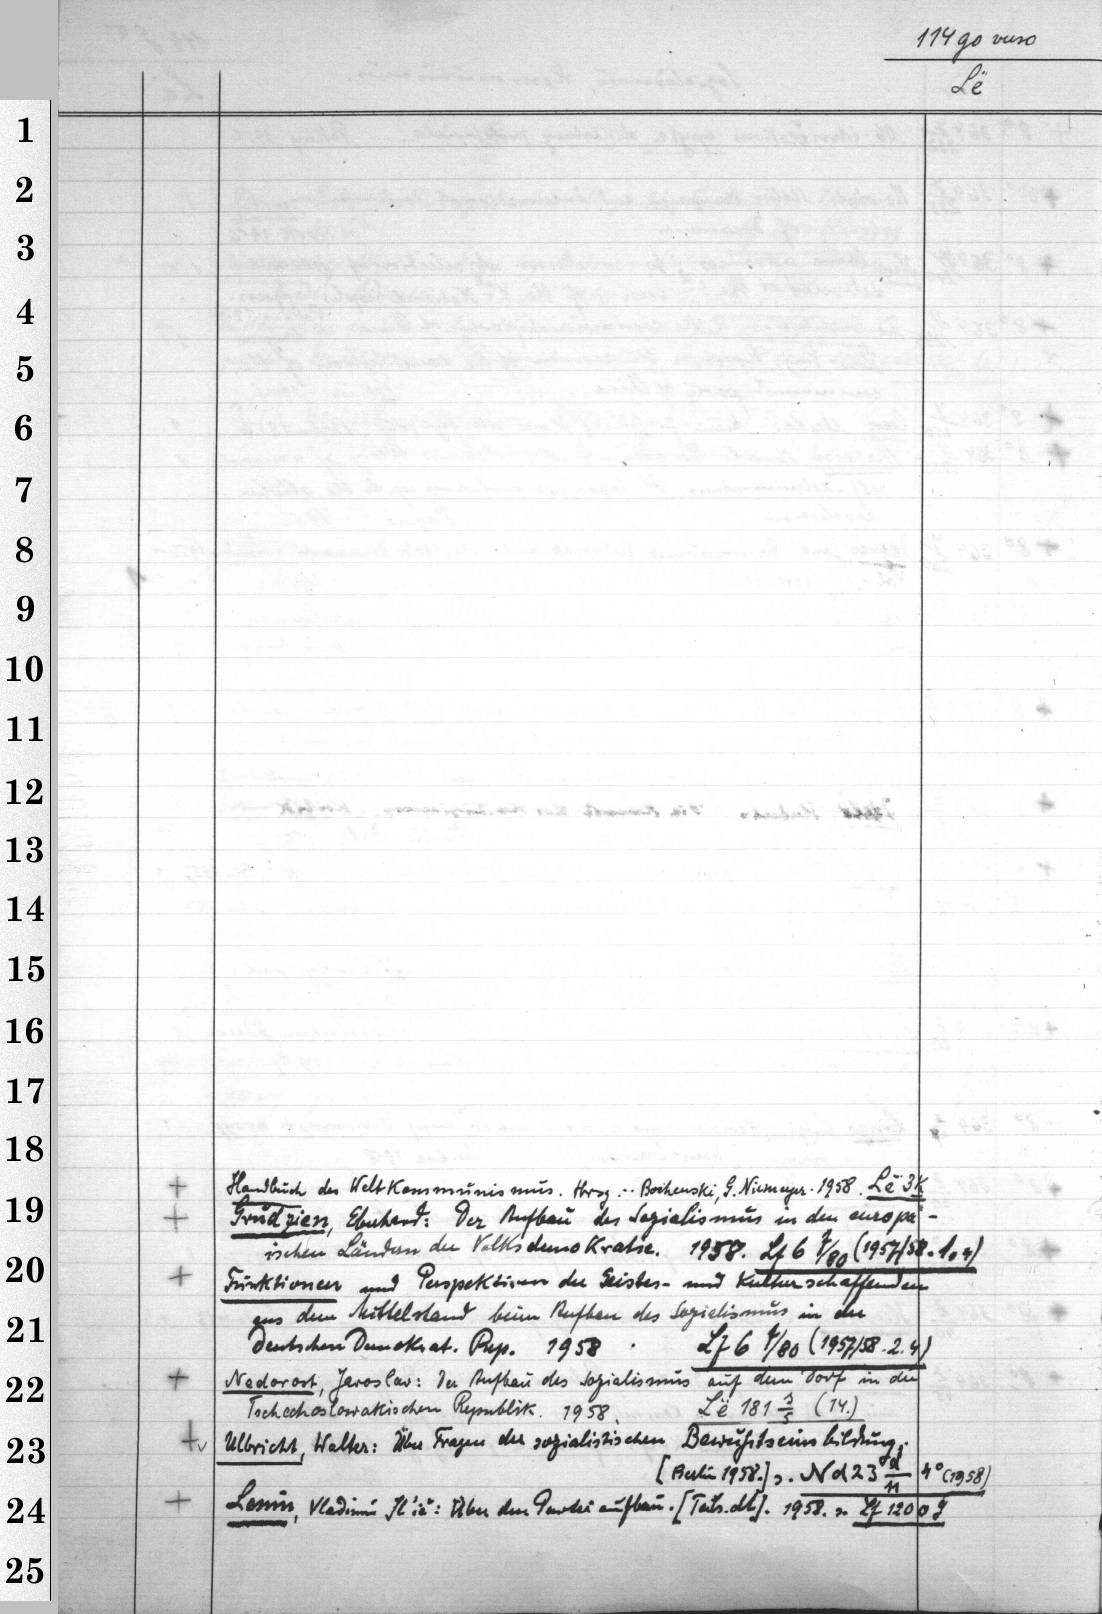 114go verso
Lë
1
2
3
4
5
6
7
8
9
10
11
12
13
14
15
16
17
18
19
20
21
22
23
24
25
+ Handbuch des Weltkommunismus. Hrsg.: Bochenski, G. Niemeyer. 1958. Lë 3K
+ Grudzien, Eberhard: Der Aufbau des Sozialismus in den europä-
ischen Ländern der Volksdemokratie. 1958. Lf 6 /80 (1957/58.1.4)
+ Funktionen und Perspektiven der Geistes- und Kulturschaffenden
aus dem Mittelstand beim Aufbau des Sozialismus in der
Deutschen Demokrat. Rep. 1958. Lf 6 /80 (1957/58.2.4)
+ Nedorost, Jaroslav: Der Aufbau des Sozialismus auf dem Dorf in der
Tschechoslowakischen Republik. 1958. Lë 181 3/5 (14.)
+ Ulbricht, Walter: Über Fragen der sozialistischen Bewußtseinsbildung.
[Berlin 1958.] Nd 23 d/n 4° (1958)
+ Lenin, Vladimir Il'ič: Über den Parteiaufbau. [Teils. dt.]. 1958. Lf 1200 g